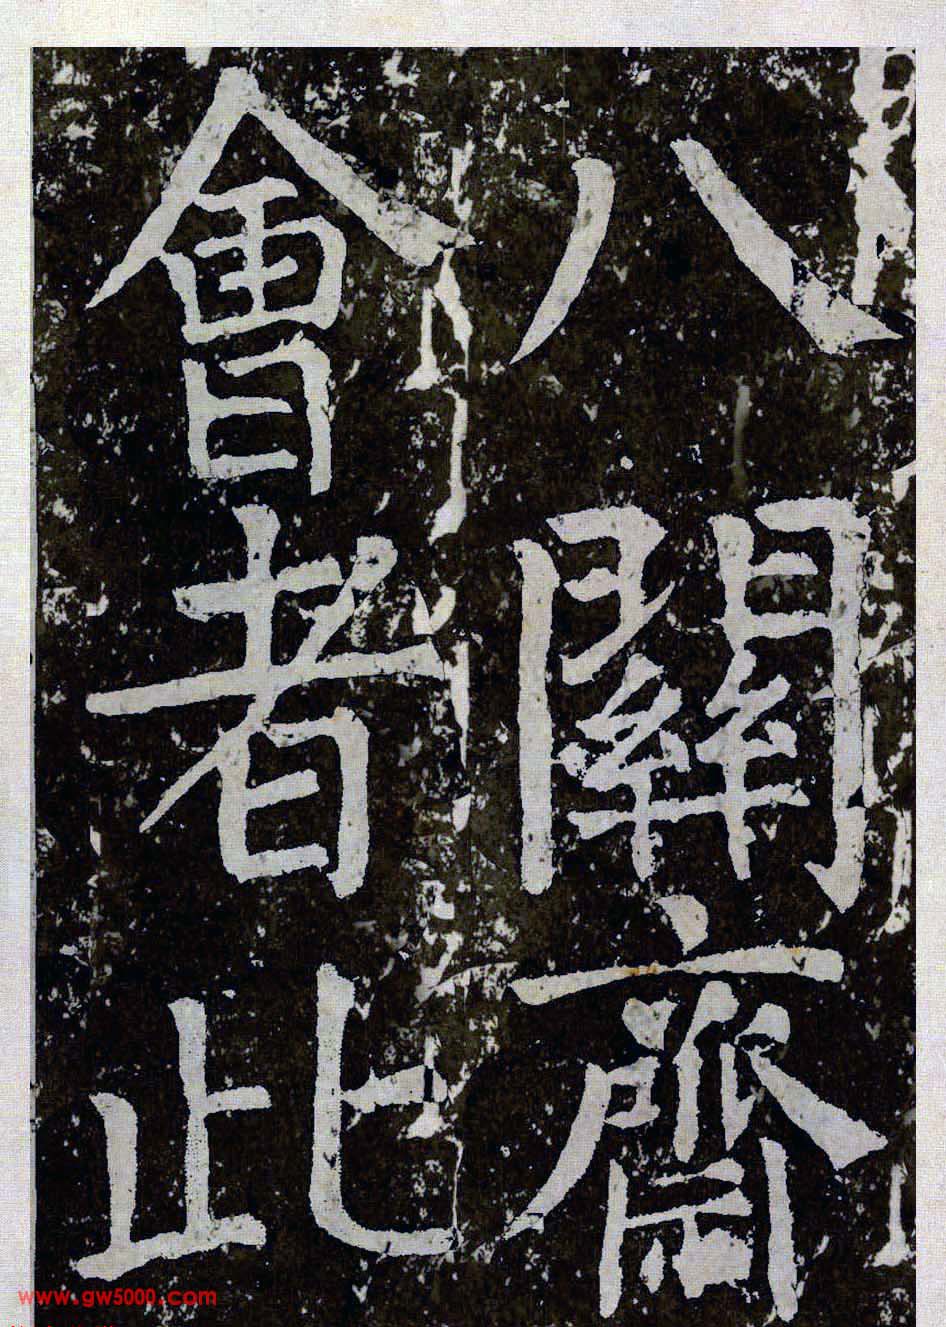 八關齋
會者此
www.gw5000.com